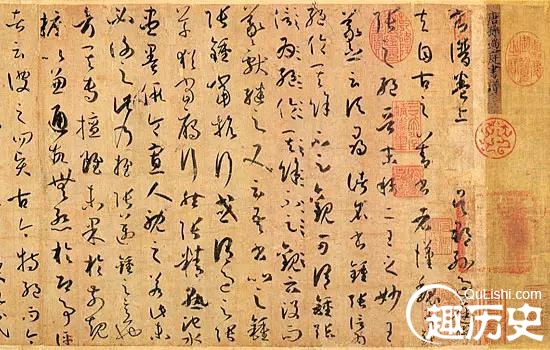 唐孫過庭書譜
書譜卷上 吳郡孫過庭撰
夫自古之善書者漢魏有鍾
張之絕晉末稱二王之妙王
羲之云頃尋諸名書鍾張信為
絕倫其餘不足觀可謂鍾張
絕倫其餘不足觀云沒而
羲獻繼之又云吾書比之鍾
張鍾當抗行或謂過之張
草猶當雁行然張精熟池水
盡墨假令寡人耽之若此未
必謝之此乃推張邁鍾之意也
考其專擅雖未果於前規
摭以兼通故無慚於即事評
者云彼之四賢古今特絕而今
QuLishi.com
趣历史